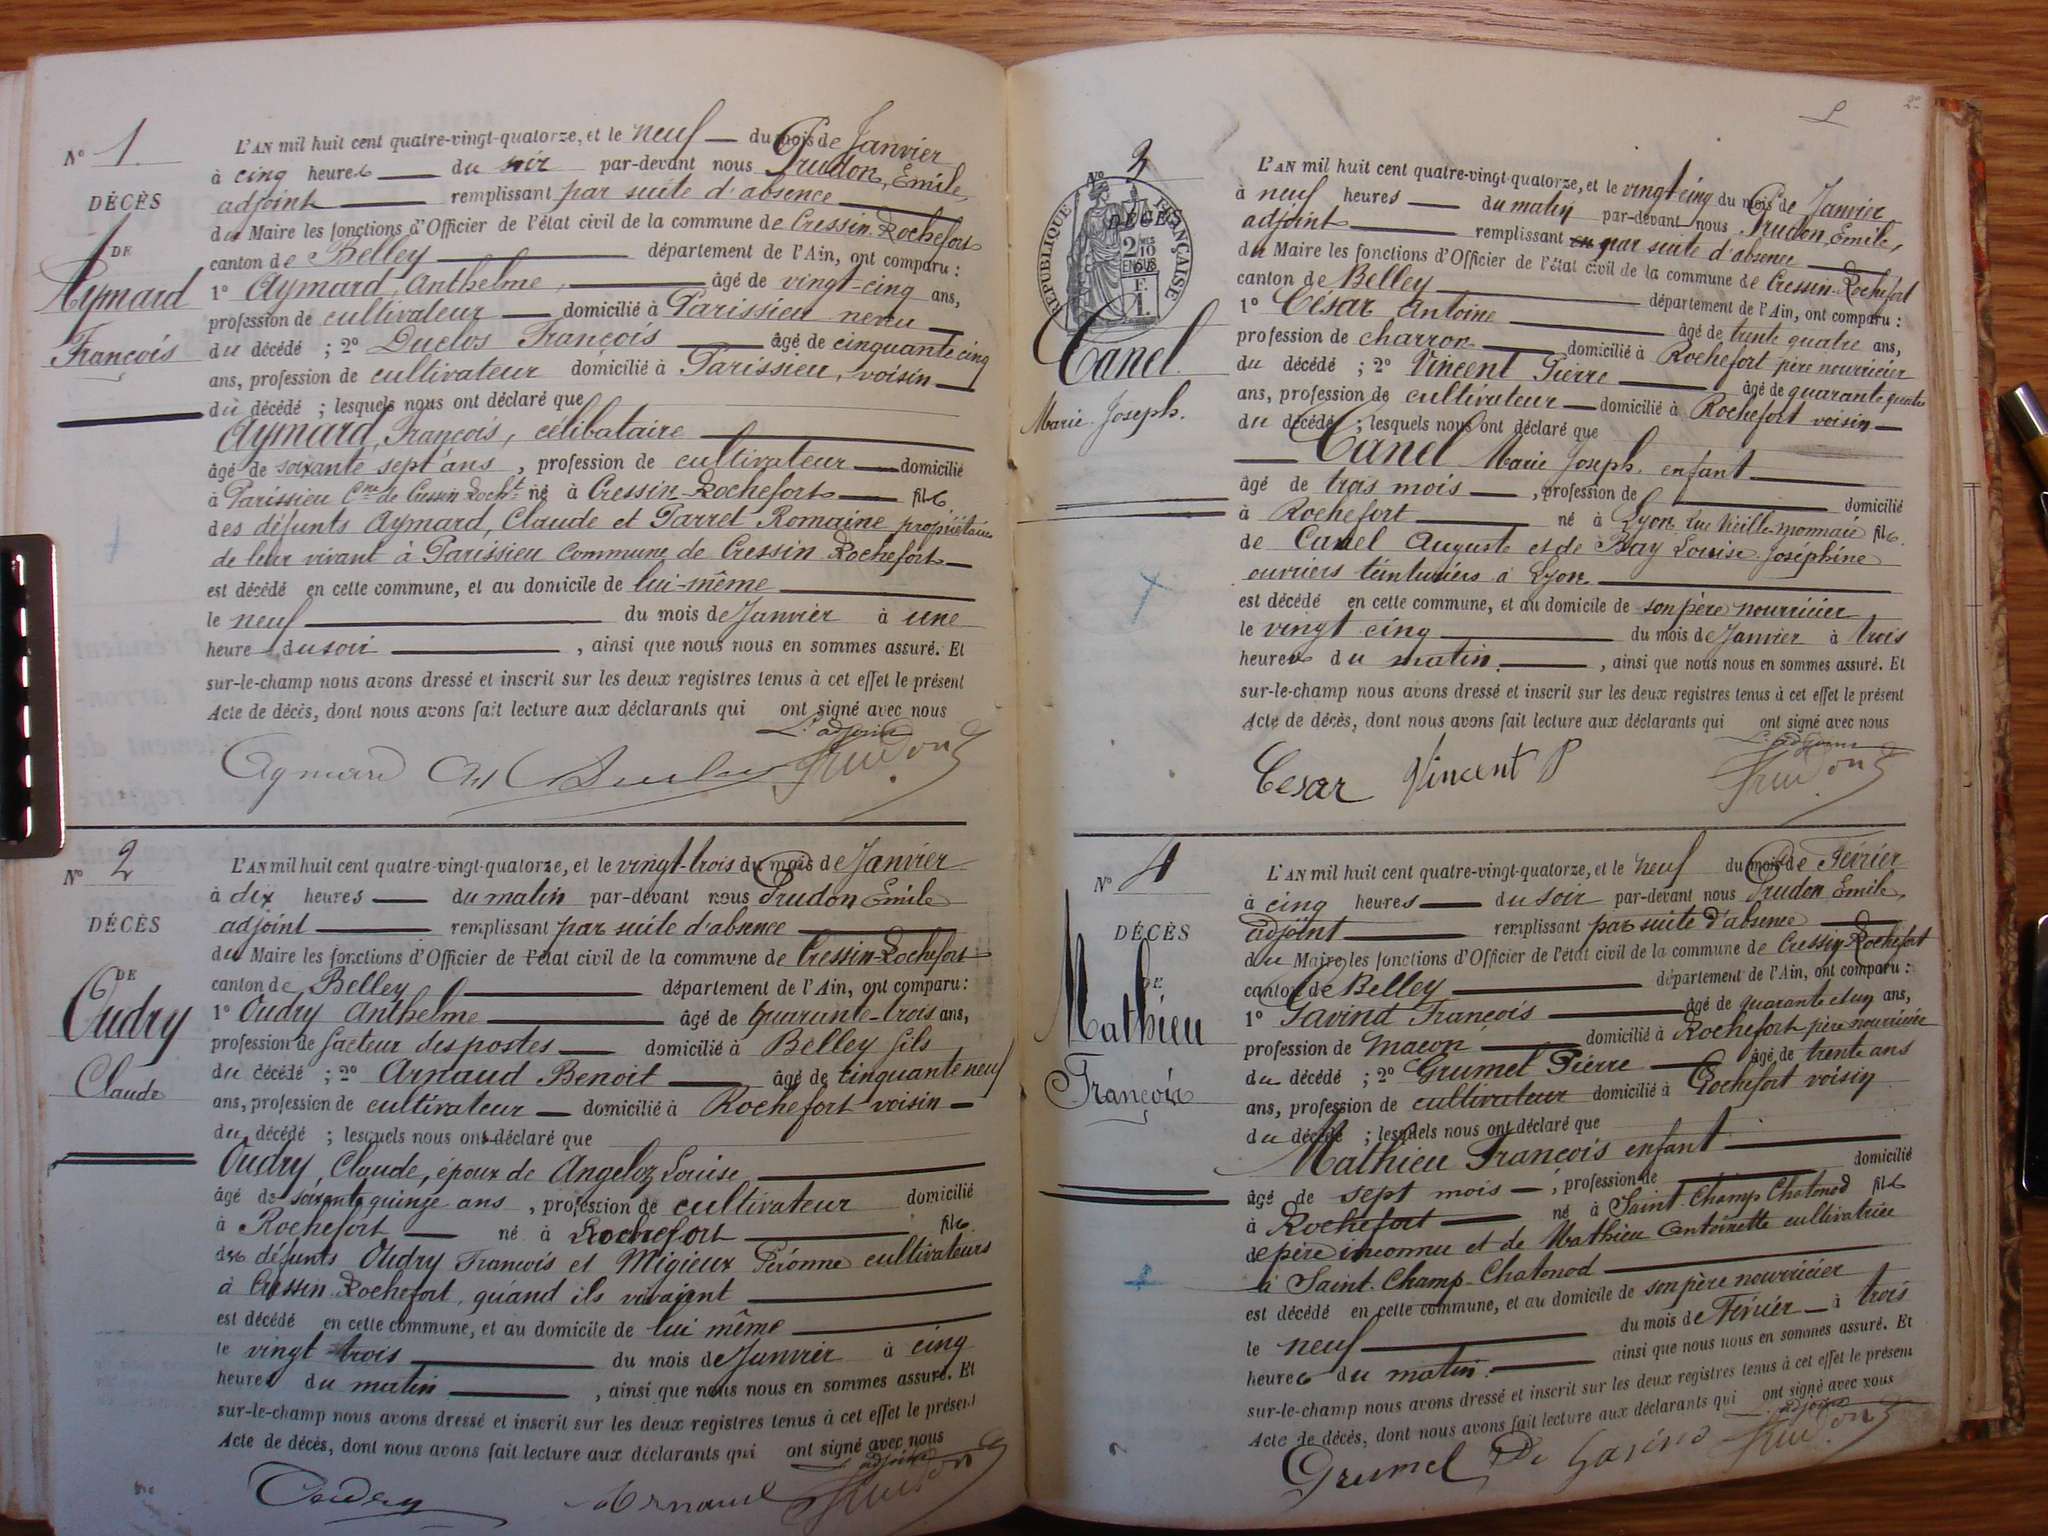 Nº 1.
DÉCÈS
DE
Aymard
François
L'AN mil huit cent quatre-vingt-quatorze, et le neuf du mois de Janvier
à cinq heures du soir par-devant nous Prudon, Emile,
adjoint remplissant par suite d'absence
du Maire les fonctions d'Officier de l'état civil de la commune de Cressin-Rochefort
canton de Belley département de l'Ain, ont comparu :
1º Aymard, Anthelme, âgé de vingt-cinq ans,
profession de cultivateur domicilié à Parissieu neveu
du décédé ; 2º Duclos François âgé de cinquante cinq
ans, profession de cultivateur domicilié à Parissieu, voisin
du décédé ; lesquels nous ont déclaré que
Aymard, François, célibataire
âgé de soixante sept ans, profession de cultivateur domicilié
à Parissieu Cne de Cressin Rocht né à Cressin-Rochefort fils
des défunts Aymard, Claude et Parret Romaine propriétaires
de leur vivant à Parissieu commune de Cressin Rochefort
est décédé en cette commune, et au domicile de lui-même
le neuf du mois de Janvier à une
heure du soir, ainsi que nous nous en sommes assuré. Et
sur-le-champ nous avons dressé et inscrit sur les deux registres tenus à cet effet le présent
Acte de décès, dont nous avons fait lecture aux déclarants qui ont signé avec nous
L'adjoint
Aymard Duclos Prudon
Nº 2
DÉCÈS
DE
Oudry
Claude
L'AN mil huit cent quatre-vingt-quatorze, et le vingt-trois du mois de Janvier
à dix heures du matin par-devant nous Prudon Emile
adjoint remplissant par suite d'absence
du Maire les fonctions d'Officier de l'état civil de la commune de Cressin-Rochefort
canton de Belley département de l'Ain, ont comparu :
1º Oudry Anthelme âgé de quarante-trois ans,
profession de facteur des postes domicilié à Belley fils
du décédé ; 2º Arnaud Benoit âgé de cinquante neuf
ans, profession de cultivateur domicilié à Rochefort voisin
du décédé ; lesquels nous ont déclaré que
Oudry, Claude, époux de Angeloz Louise
âgé de soixante quinze ans, profession de cultivateur domicilié
à Rochefort né à Rochefort fils
des défunts Oudry François et Migieux Péronne cultivateurs
à Cressin-Rochefort, quand ils vivaient
est décédé en cette commune, et au domicile de lui même
le vingt trois du mois de Janvier à cinq
heures du matin, ainsi que nous nous en sommes assuré. Et
sur-le-champ nous avons dressé et inscrit sur les deux registres tenus à cet effet le présent
Acte de décès, dont nous avons fait lecture aux déclarants qui ont signé avec nous
L'adjoint
Oudry Arnaud Prudon
2
Nº 3
DÉCÈS
RÉPUBLIQUE FRANÇAISE
2 10
EN SUS
1 F.
Canel
Marie Joseph.
L'AN mil huit cent quatre-vingt-quatorze, et le vingt-cinq du mois de Janvier
à neuf heures du matin par-devant nous Prudon Emile,
adjoint remplissant par suite d'absence
du Maire les fonctions d'Officier de l'état civil de la commune de Cressin-Rochefort
canton de Belley département de l'Ain, ont comparu :
1º César Antoine âgé de trente quatre ans,
profession de charron domicilié à Rochefort père nourricier
du décédé ; 2º Vincent Pierre âgé de quarante quatre
ans, profession de cultivateur domicilié à Rochefort voisin
du décédé ; lesquels nous ont déclaré que
Canel Marie Joseph. enfant
âgé de trois mois, profession de domicilié
à Rochefort né à Lyon rue Vieille-monnaie fils
de Canel Auguste et de Ray Louise Joséphine
ouvriers teinturiers à Lyon
est décédé en cette commune, et au domicile de son père nourricier
le vingt cinq du mois de Janvier à trois
heures du matin, ainsi que nous nous en sommes assuré. Et
sur-le-champ nous avons dressé et inscrit sur les deux registres tenus à cet effet le présent
Acte de décès, dont nous avons fait lecture aux déclarants qui ont signé avec nous
L'adjoint
Cesar Vincent P Prudon
Nº 4
DÉCÈS
DE
Mathieu
François
L'AN mil huit cent quatre-vingt-quatorze, et le neuf du mois de Février
à cinq heures du soir par-devant nous Prudon Emile,
adjoint remplissant par suite d'absence
du Maire les fonctions d'Officier de l'état civil de la commune de Cressin-Rochefort
canton de Belley département de l'Ain, ont comparu :
1º Gavind François âgé de quarante et un ans,
profession de maçon domicilié à Rochefort père nourricier
du décédé ; 2º Grumel Pierre âgé de trente ans
ans, profession de cultivateur domicilié à Rochefort voisin
du décédé ; lesquels nous ont déclaré que
Mathieu François enfant
âgé de sept mois, profession de domicilié
à Rochefort né à Saint-Champ Chatonod fils
de père inconnu et de Mathieu Antoinette cultivatrice
à Saint-Champ-Chatonod
est décédé en cette commune, et au domicile de son père nourricier
le neuf du mois de Février à trois
heures du matin. ainsi que nous nous en sommes assuré. Et
sur-le-champ nous avons dressé et inscrit sur les deux registres tenus à cet effet le présent
Acte de décès, dont nous avons fait lecture aux déclarants qui ont signé avec nous
L'adjoint
Grumel Prudon